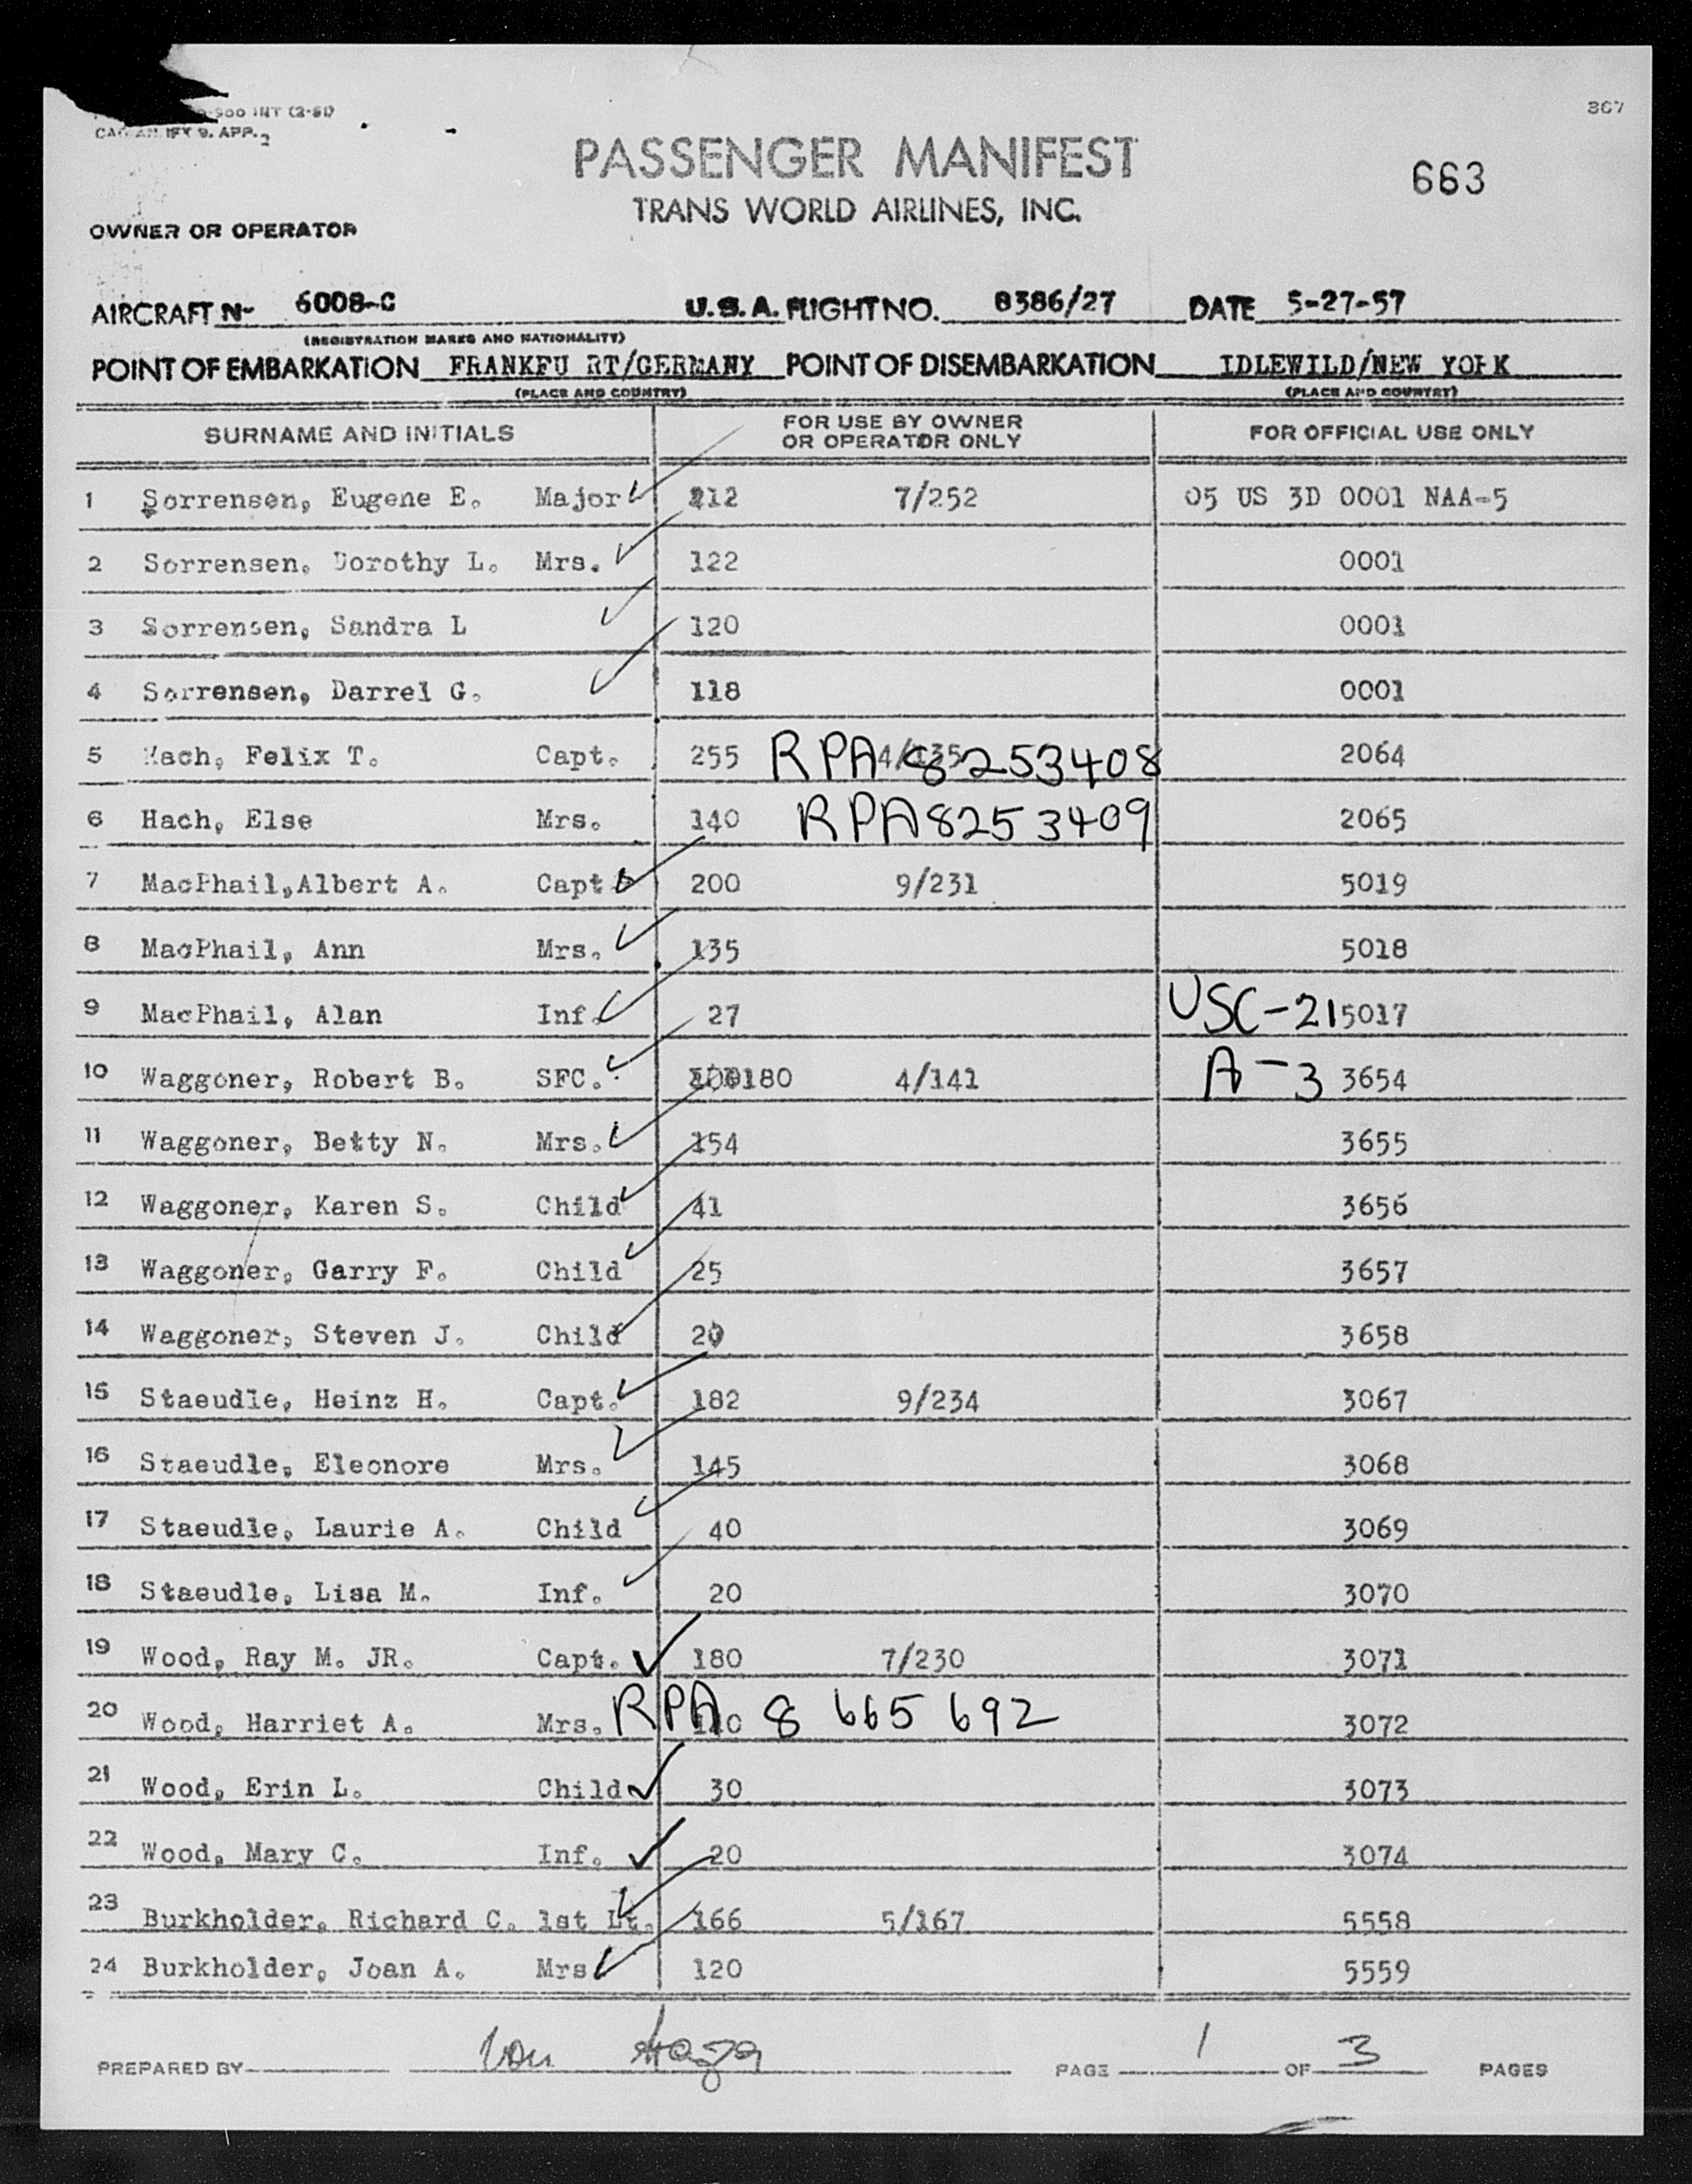 -900 INT (2-51)
307
9. APP. 2
PASSENGER MANIFEST
663
TRANS WORLD AIRLINES, INC.
OWNER OR OPERATOR
AIRCRAFT N- 6008-C U.S.A. FLIGHT NO. 8386/27 DATE 5-27-57
(REGISTRATION MARKS AND NATIONALITY)
POINT OF EMBARKATION FRANKFU RT/GERMANY POINT OF DISEMBARKATION IDLEWILD/NEW YORK
(PLACE AND COUNTRY) (PLACE AND COUNTRY)
SURNAME AND INITIALS FOR USE BY OWNER OR OPERATOR ONLY FOR OFFICIAL USE ONLY
1 Sorrensen, Eugene E. Major 212 7/252 05 US 3D 0001 NAA-5
2 Sorrensen, Dorothy L. Mrs. 122 0001
3 Sorrensen, Sandra L 120 0001
4 Sorrensen, Darrel G. 118 0001
5 Hach, Felix T. Capt. 255 4/135 RPA 8253408 2064
6 Hach, Else Mrs. 140 RPA 8253409 2065
7 MacPhail,Albert A. Capt. 200 9/231 5019
8 MacPhail, Ann Mrs. 135 5018
9 MacPhail, Alan Inf. 27 USC-21 5017
10 Waggoner, Robert B. SFC. 180 4/141 A-3 3654
11 Waggoner, Betty N. Mrs. 154 3655
12 Waggoner, Karen S. Child 41 3656
13 Waggoner, Garry F. Child 25 3657
14 Waggoner, Steven J. Child 20 3658
15 Staeudle, Heinz H. Capt. 182 9/234 3067
16 Staeudle, Eleonore Mrs. 145 3068
17 Staeudle, Laurie A. Child 40 3069
18 Staeudle, Lisa M. Inf. 20 3070
19 Wood, Ray M. JR. Capt. 180 7/230 3071
20 Wood, Harriet A. Mrs. RPA 8 665 692 3072
21 Wood, Erin L. Child 30 3073
22 Wood, Mary C. Inf. 20 3074
23 Burkholder, Richard C. 1st Lt. 166 5/167 5558
24 Burkholder, Joan A. Mrs. 120 5559
PREPARED BY PAGE 1 OF 3 PAGES